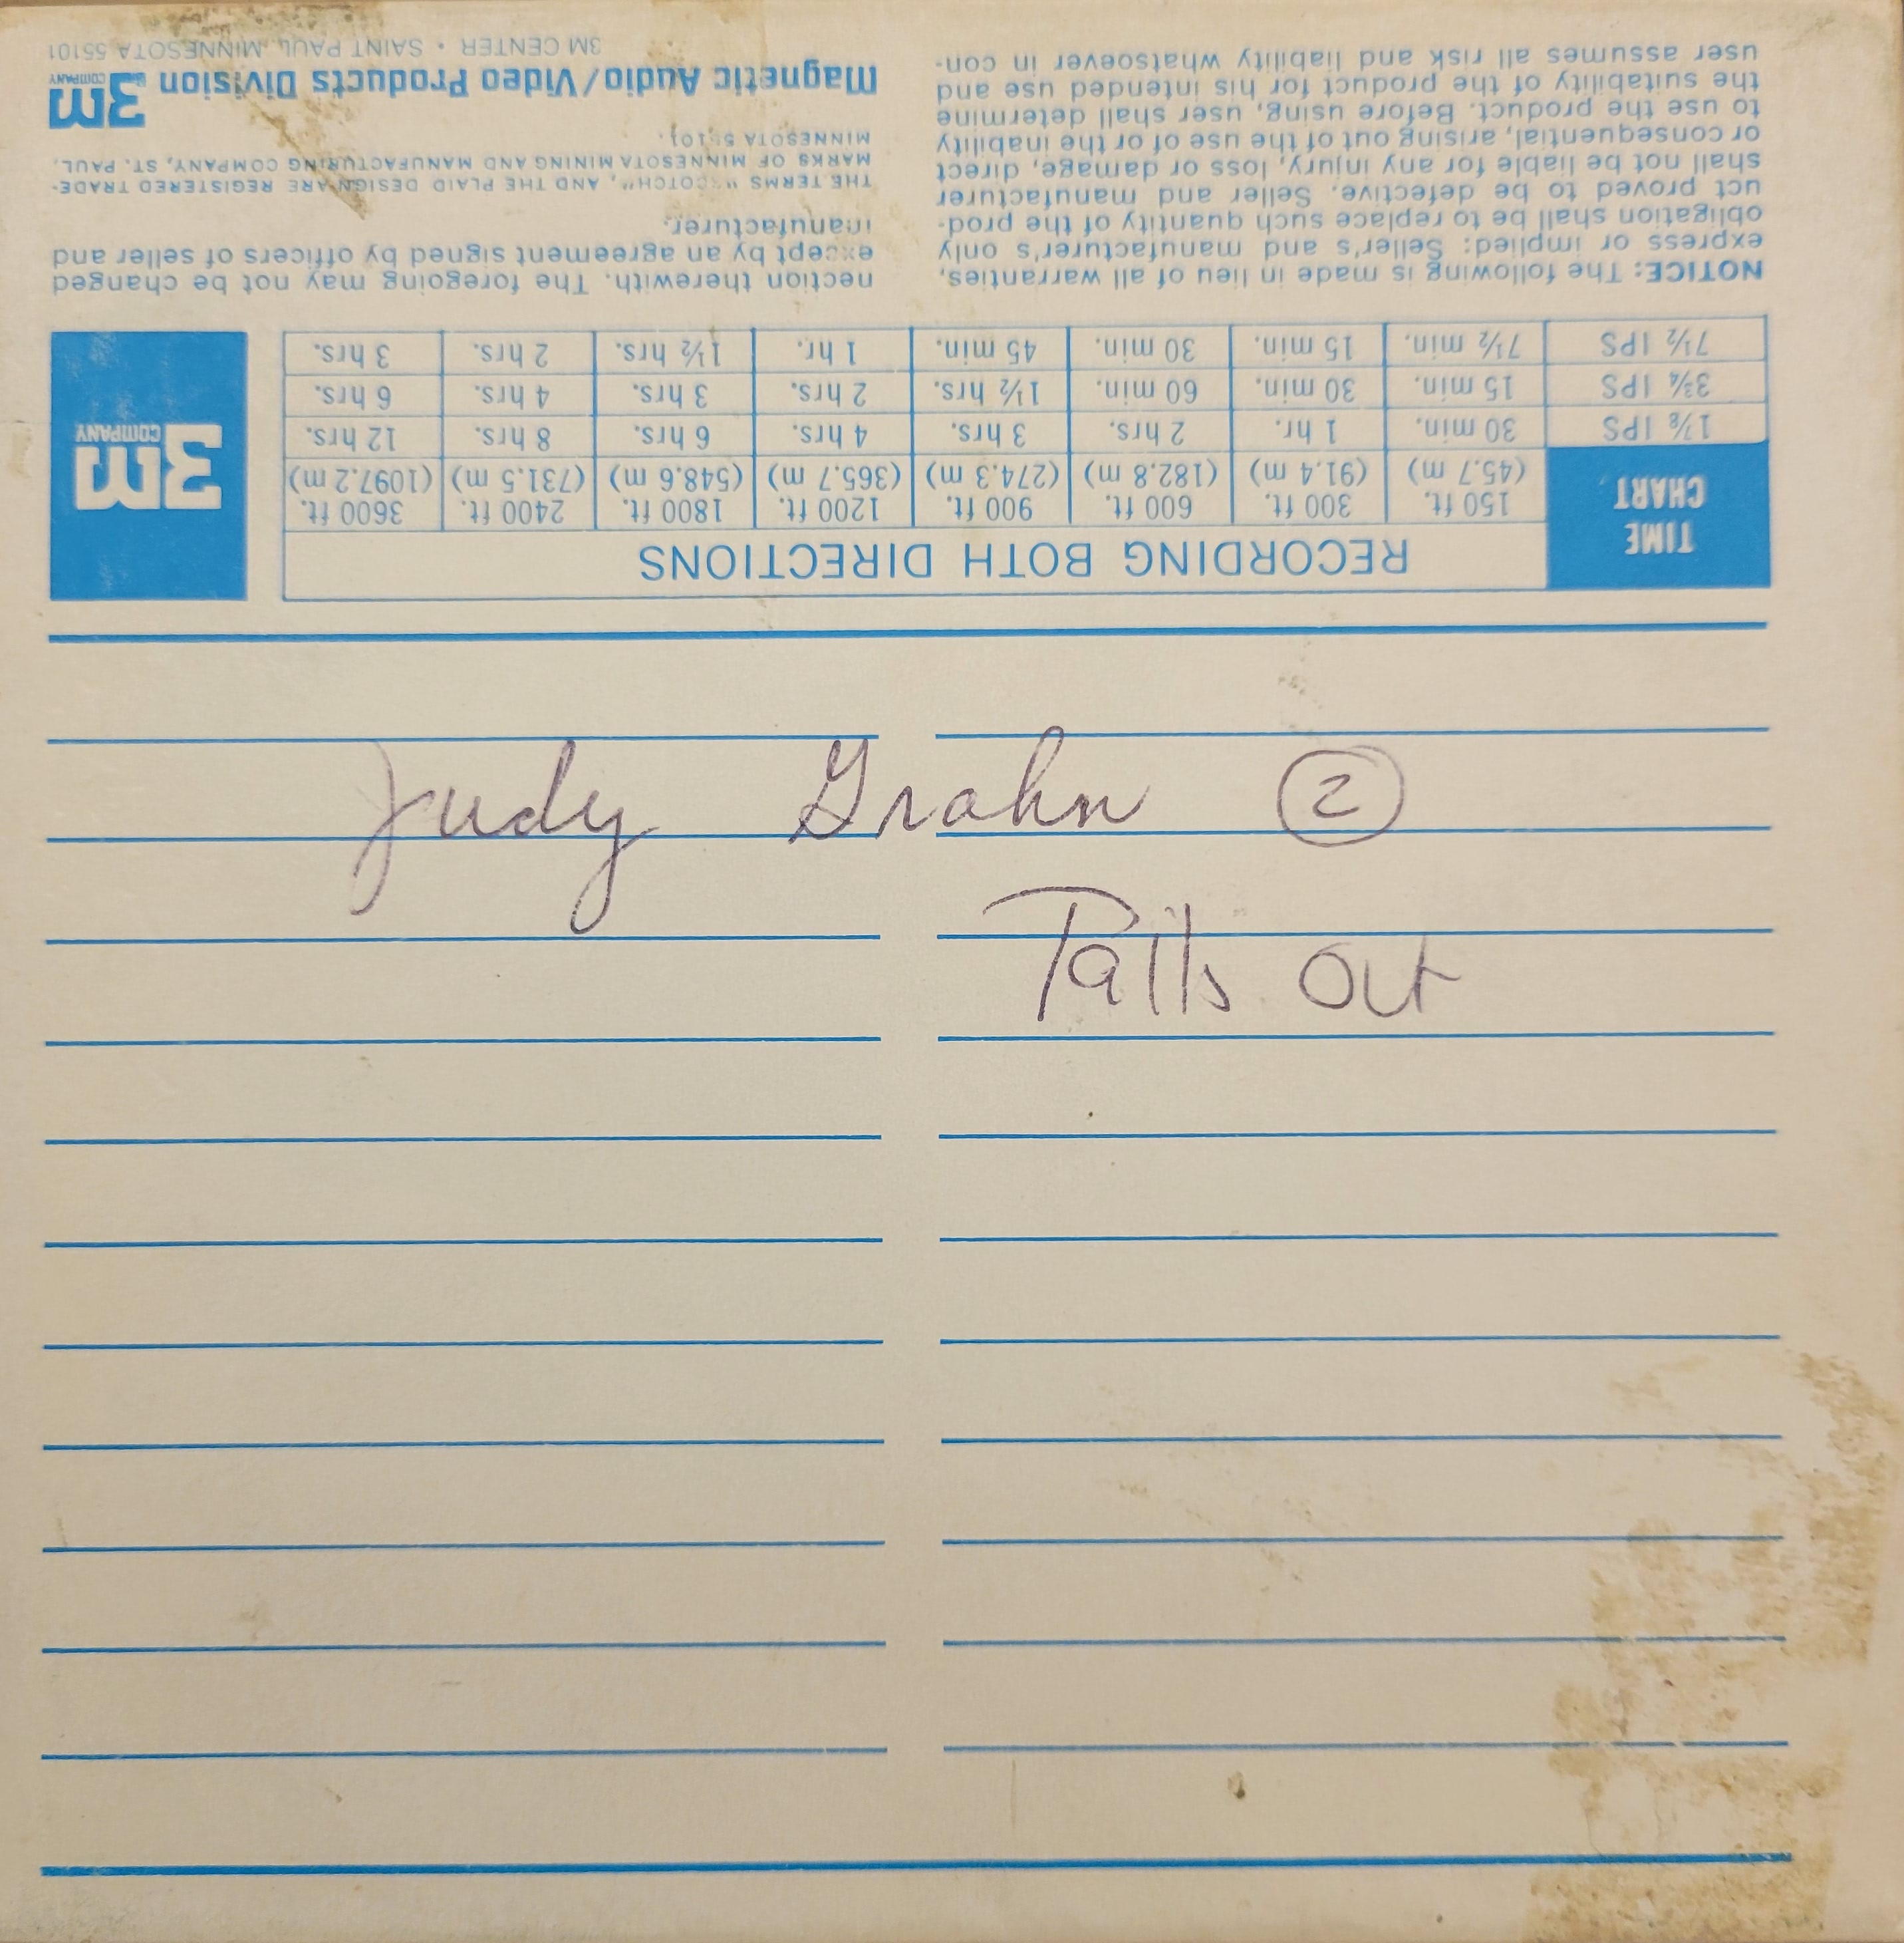 Judy Grahn 2
Tails Out
RECORDING BOTH DIRECTIONS
TIME
CHART
150 ft. 300 ft. 600 ft. 900 ft. 1200 ft. 1800 ft. 2400 ft. 3600 ft.
(45.7 m) (91.4 m) (182.8 m) (274.3 m) (365.7 m) (548.6 m) (731.5 m) (1097.2 m)
1⅞ IPS 30 min. 1 hr. 2 hrs. 3 hrs. 4 hrs. 6 hrs. 8 hrs. 12 hrs.
3¾ IPS 15 min. 30 min. 60 min. 1½ hrs. 2 hrs. 3 hrs. 4 hrs. 6 hrs.
7½ IPS 7½ min. 15 min. 30 min. 45 min. 1 hr. 1½ hrs. 2 hrs. 3 hrs.
3M
COMPANY
NOTICE: The following is made in lieu of all warranties,
express or implied: Seller's and manufacturer's only
obligation shall be to replace such quantity of the prod-
uct proved to be defective. Seller and manufacturer
shall not be liable for any injury, loss or damage, direct
or consequential, arising out of the use of or the inability
to use the product. Before using, user shall determine
the suitability of the product for his intended use and
user assumes all risk and liability whatsoever in con-
nection therewith. The foregoing may not be changed
except by an agreement signed by officers of seller and
manufacturer.
THE TERMS "SCOTCH", AND THE PLAID DESIGN ARE REGISTERED TRADE-
MARKS OF MINNESOTA MINING AND MANUFACTURING COMPANY, ST. PAUL,
MINNESOTA 55101.
Magnetic Audio/Video Products Division 3M
COMPANY
3M CENTER • SAINT PAUL, MINNESOTA 55101